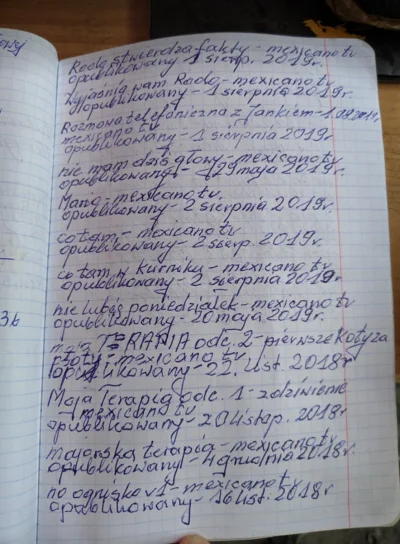 Rado stwierdza fakty - mexicano tv
opublikowany - 1 sierp. 2019r.
Wyjaśnia wam Rado - mexicano tv
opublikowany - 1 sierpnia 2019r.
Rozmowa telefoniczna z Jankiem - 1.08.2019r.
mexicano tv
opublikowany - 1 sierpnia 2019r.
nie mam dziś głowy - mexicano tv
opublikowany - 29 maja 2019r.
Mania - mexicano tv.
opublikowany - 2 sierpnia 2019r.
co tam - mexicano tv
opublikowany - 2 sierp. 2019r.
co tam w kurniku - mexicano tv
opublikowany - 2 sierpnia 2019r.
nie lubię poniedziałek - mexicano tv
opublikowany - 20 maja 2019r.
moja TERAPIA odc. 2 - pierwsze koty za
płoty - mexicano tv
opublikowany - 22. list. 2018r
Moja Terapia odc. 1 - zdziwienie
- mexicano tv
opublikowany - 20 listop. 2018r
majorska terapia - mexicano tv
opublikowany - 4 grudnia 2018r.
no ognisko v1 - mexicano tv
opublikowany - 16 list. 2018r
36